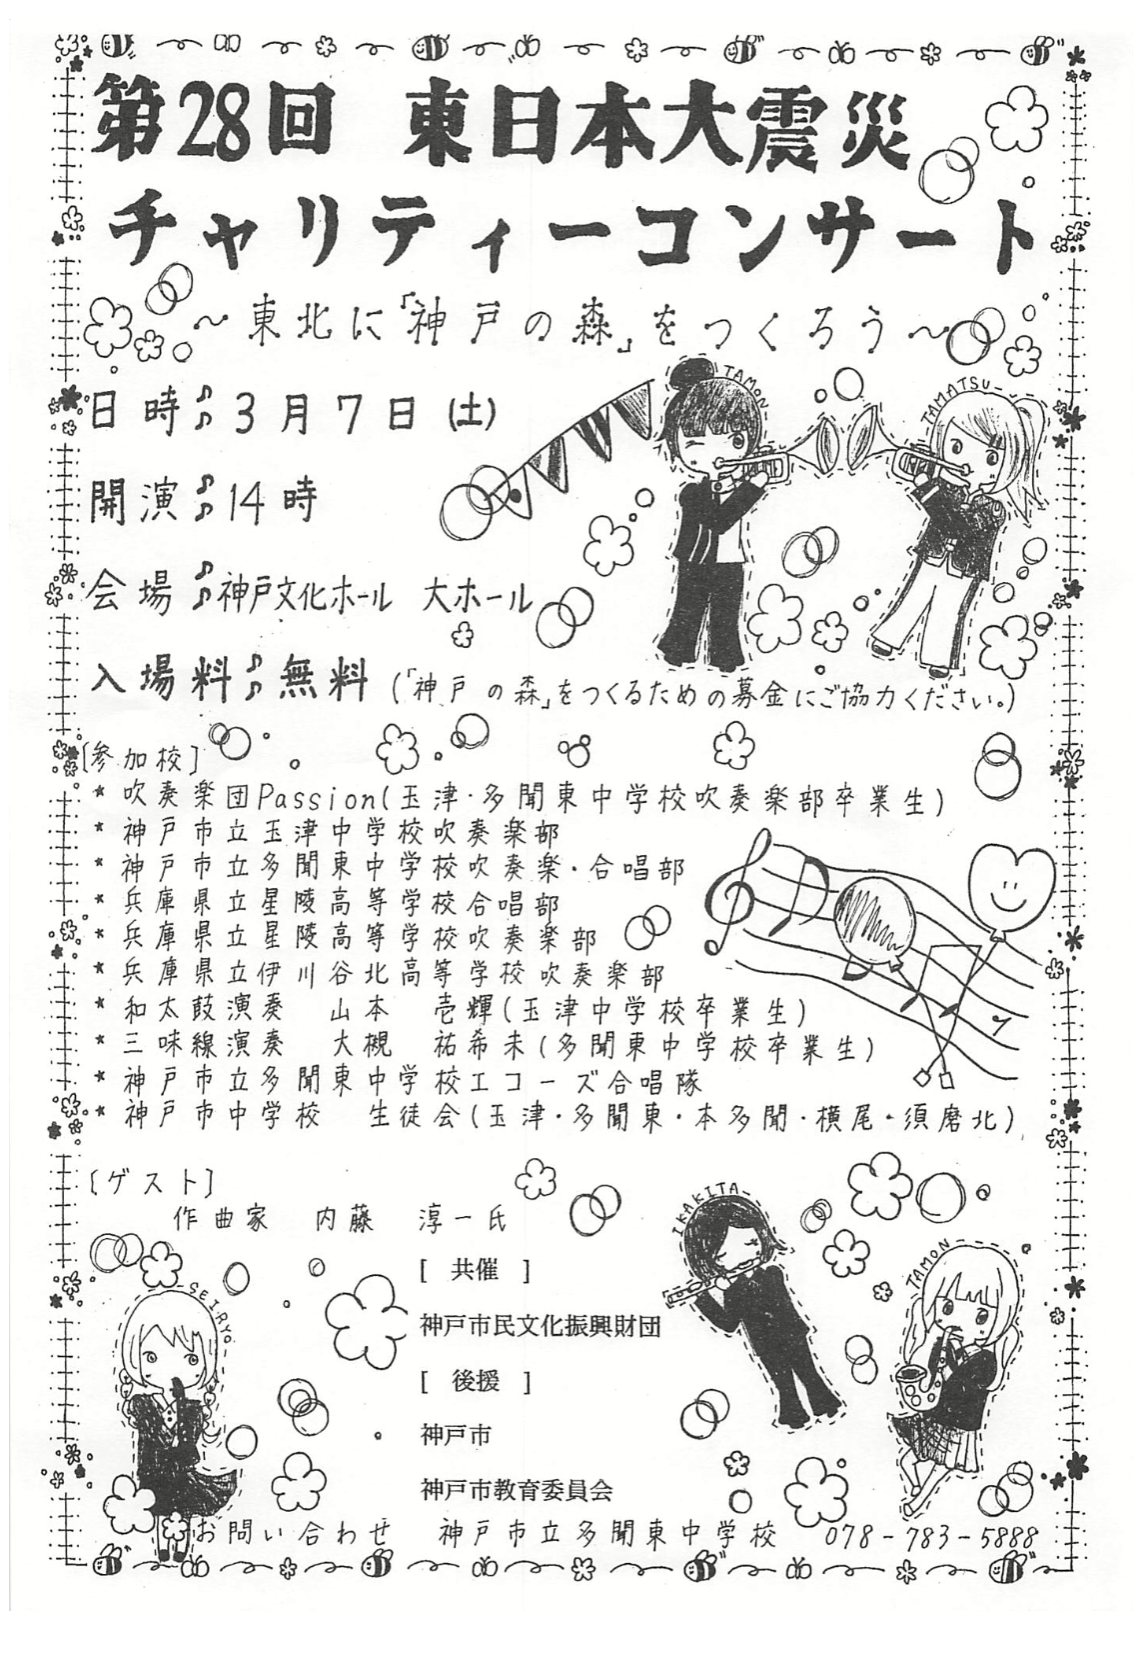 第28回 東日本大震災
チャリティーコンサート
～東北に「神戸の森」をつくろう～
日時 3月7日(土)
開演 14時
会場 神戸文化ホール 大ホール
入場料 無料 (「神戸の森」をつくるための募金にご協力ください。)
TAMON-
TAMATSU-
[参加校]
* 吹奏楽団Passion(玉津・多聞東中学校吹奏楽部卒業生)
* 神戸市立玉津中学校吹奏楽部
* 神戸市立多聞東中学校吹奏楽・合唱部
* 兵庫県立星陵高等学校合唱部
* 兵庫県立星陵高等学校吹奏楽部
* 兵庫県立伊川谷北高等学校吹奏楽部
* 和太鼓演奏 山本 壱輝(玉津中学校卒業生)
* 三味線演奏 大槻 祐希未(多聞東中学校卒業生)
* 神戸市立多聞東中学校エコーズ合唱隊
* 神戸市中学校 生徒会(玉津・多聞東・本多聞・横尾・須磨北)
[ゲスト]
作曲家 内藤 淳一氏
IKAKITA-
TAMON-
SEIRYO
[ 共催 ]
神戸市民文化振興財団
[ 後援 ]
神戸市
神戸市教育委員会
お問い合わせ 神戸市立多聞東中学校 078-783-5888